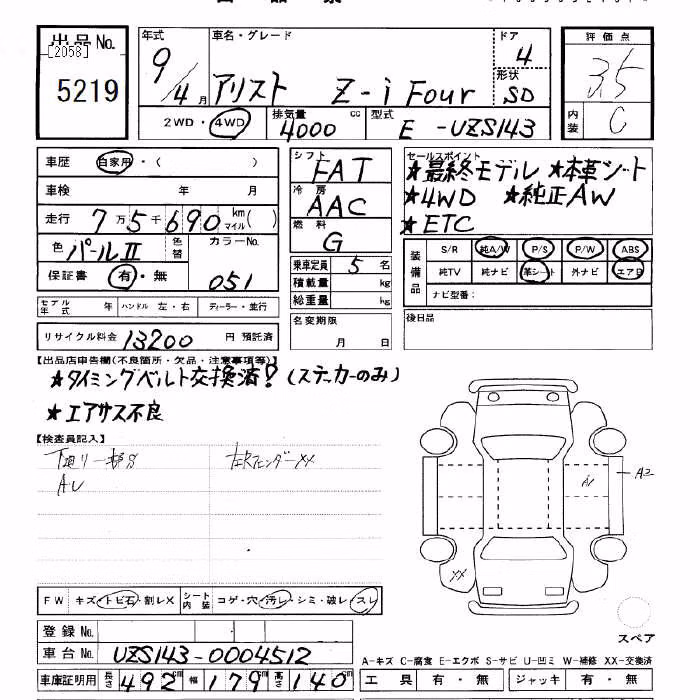 出品No.
[2058]
5219
年式 車名・グレード ドア
9/4月 アリスト Z-i Four 4
形状
SD
2WD・4WD 排気量 4000 cc 型式 E-UZS143
評価点
3.5
内装 C
車歴 自家用・( )
車検 年 月
走行 7万5千690 km マイル( )
色 パールII 色替 カラーNo.
保証書 有・無 051
モデル年式 年 ハンドル 左・右 ディーラー・並行
リサイクル料金 13200 円 預託済
シフト FAT
冷房 AAC
燃料 G
乗車定員 5名
積載量 kg
総重量 kg
名変期限
月 日
セールスポイント
★最終モデル ★本革シート
★4WD ★純正AW
★ETC
装備品 S/R 純A/W P/S P/W ABS
純TV 純ナビ 革シート 外ナビ エアB
ナビ型番:
後日品
【出品店申告欄(不良箇所・欠品・注意事項等)】
★タイミングベルト交換済?(ステッカーのみ)
★エアサス不良
【検査員記入】
下廻り一部S 左RフェンダーXX
AU
A1
A2
XX
スペア
FW キズ・トビ石・割レX シート内装 コゲ・穴・汚レ・シミ・破レ・スレ
登録No.
車台No. UZS143-0004512
車庫証明用 長さ 492 cm 幅 179 cm 高さ 140 cm
A-キズ C-腐食 E-エクボ S-サビ U-凹ミ W-補修 XX-交換済
工具 有・無 ジャッキ 有・無